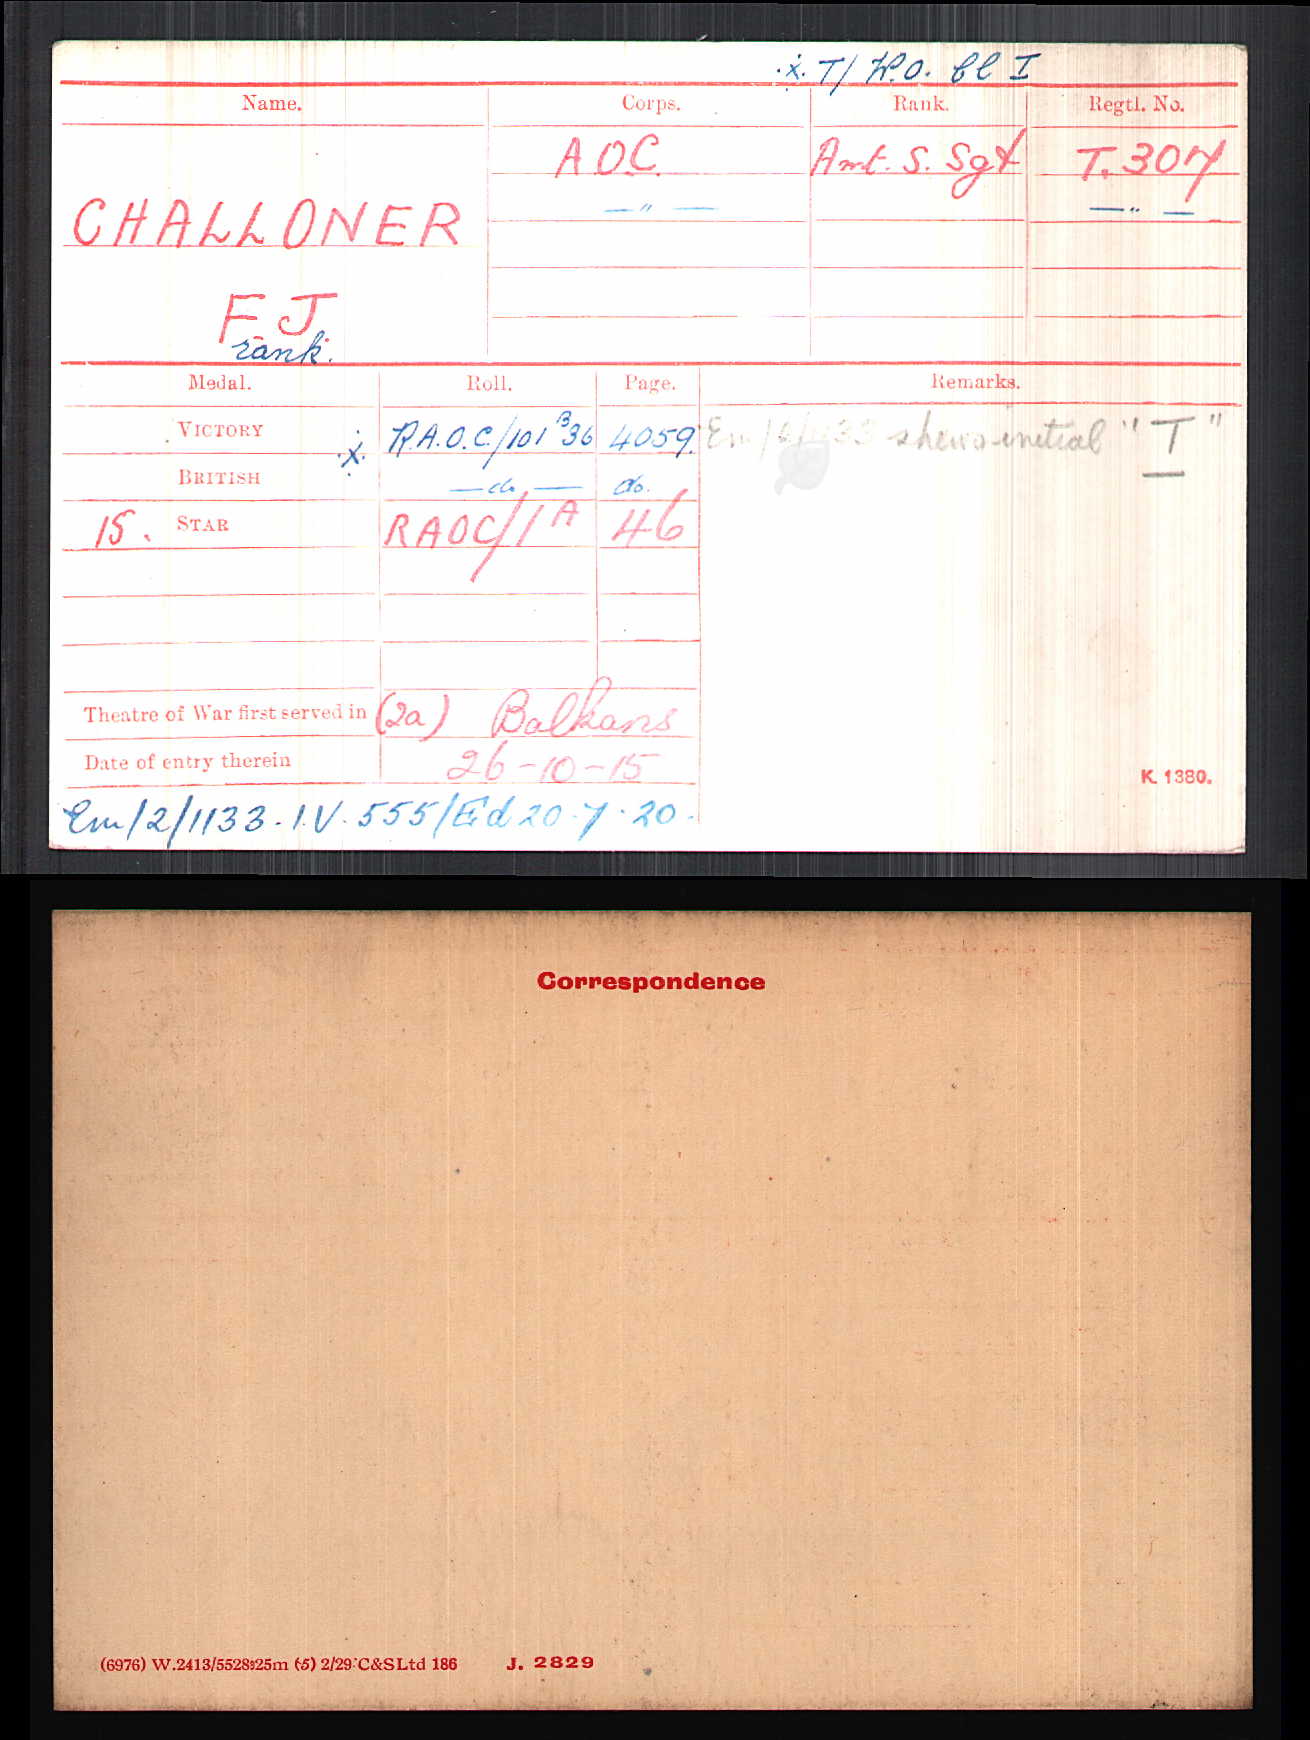 .x. T/ W.O. Cl I
Name. Corps. Rank. Regtl. No.
A O C Amt. S. Sgt T. 307
—"— —"—
CHALLONER
F J
rank.
Medal. Roll. Page. Remarks.
VICTORY .x. R.A.O.C./101 B36 4059. Em/2/1133 shews initial "T"
BRITISH —do,— do.
15. STAR RAOC/1A 46
Theatre of War first served in (2a) Balkans
Date of entry therein 26-10-15
K. 1380.
Em/2/1133. I.V. 555/Ed 20.7.20.
Correspondence
(6976) W.2413/5528 25m (5) 2/29 C&SLtd 186 J. 2829